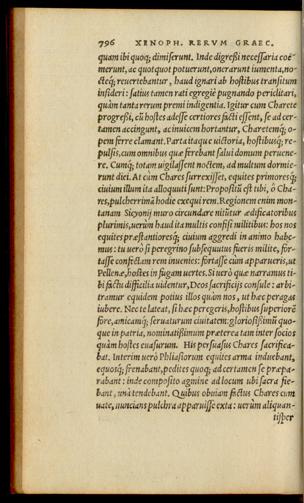 796 XENOPH. RERVM GRAEC.
quam ibi quoq; dimiserunt. Inde digreßi necessaria coë-
merunt, ac quotquot potuerunt, onerarunt iumenta, no-
cteq; reuertebantur, haud ignari ab hostibus transitum
insideri: satius tamen rati egregiè pugnando periclitari,
quàm tanta rerum premi indigentia. Igitur cum Charete
progreßi, cū hostes adesse certiores facti essent, se ad cer-
tamen accingunt, ac inuicem hortantur, Charetemq; o-
pem ferre clamant. Parta itaque uictoria, hostibusq; re-
pulsis, cum omnibus quæ ferebant salui domum peruene-
re. Cumq; totam uigilassent noctem, ad multum dormie-
runt diei. At cùm Chares surrexisset, equites primoresq;
ciuium illum ita alloquuti sunt: Propositū est tibi, ô Cha-
res, pulcherrimā hodie exequi rem. Regionem enim mon-
tanam Sicyonij muro circundare nitūtur ædificatoribus
plurimis, uerùm haud ita multis confisi militibus: hos nos
equites præstantioresq; ciuium aggredi in animo habe-
mus: tu uerò si peregrino subsequutus fueris milite, for-
tasse confectam rem inuenies: fortasse cùm apparueris, ut
Pellenæ, hostes in fugam uertes. Si uerò quæ narramus ti-
bi factu difficilia uidentur, Deos sacrificijs consule: arbi-
tramur equidem potius illos quàm nos, ut hæc peragas
iubere. Nec te lateat, si hæc peregeris, hostibus superiorē
fore, amicamq; seruaturum ciuitatem: gloriosißimū quo-
que in patria, nominatißimum præterea tam inter socios
quàm hostes euasurum. His persuasus Chares sacrifica-
bat. Interim uerò Phliasiorum equites arma induebant,
equosq; frenabant, pedites quoq; ad certamen se præpa-
rabant: inde composito agmine ad locum ubi sacra fie-
bant, unà tendebant. Quibus obuiam factus Chares cum
uate, nuncians pulchra apparuisse exta: uerùm aliquan-
tisper